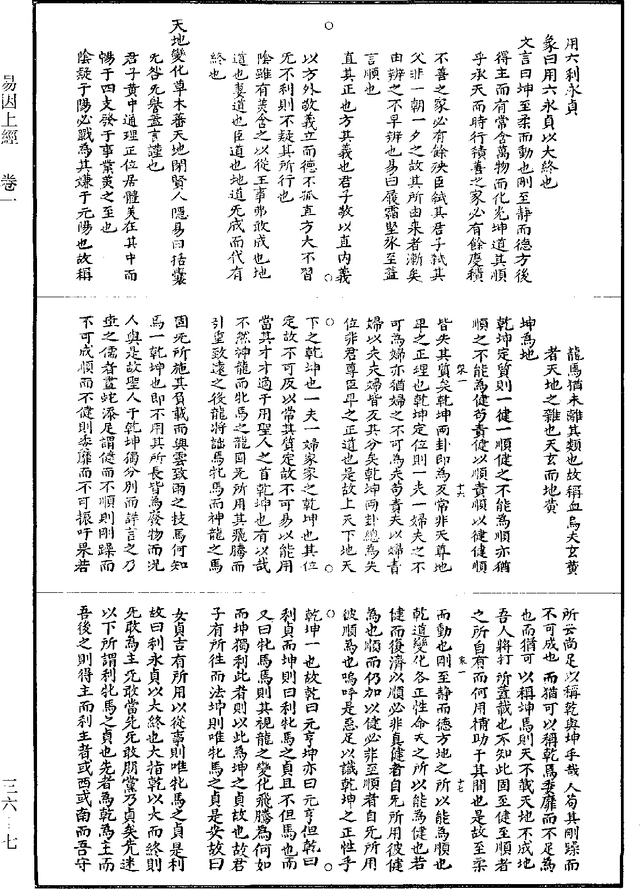 易因上經 卷一
用六利永貞
象曰用六永貞以大終也
文言曰坤至柔而動也剛至靜而德方後
得主而有常含萬物而化光坤道其順
乎承天而時行積善之家必有餘慶積
不善之家必有餘殃臣弒其君子弒其
父非一朝一夕之故其所由來者漸矣
由辨之不早辨也易曰履霜堅氷至蓋
言順也
直其正也方其義也君子敬以直內義
以方外敬義立而德不孤直方大不習
无不利則不疑其所行也
陰雖有美含之以從王事弗敢成也地
道也妻道也臣道也地道无成而代有
終也
天地變化草木蕃天地閉賢人隱易曰括囊
无咎无譽蓋言謹也
君子黃中通理正位居體美在其中而
暢于四支發于事業美之至也
陰疑于陽必戰為其嫌于无陽也故稱
龍焉猶未離其類也故稱血焉夫玄黃
者天地之雜也天玄而地黃
坤為地
乾坤定質則一健一順健之不能為順亦猶
順之不能為健苟責健以順責順以健健順
皆失其質矣乾坤兩卦即為反常非天尊地
卑之正理也乾坤定位則一夫一婦夫之不
可為婦亦猶婦之不可為夫苟責夫以婦責
婦以夫夫婦皆反其分矣乾坤兩卦總為失
位非君尊臣卑之正道也是故上天下地天
下之乾坤也一夫一婦家家之乾坤也其位
定故不可反以常其質定故不可易以能用
當其才才適于用聖人之首乾坤也有以哉
不然神龍而牝馬之龍固无所用其飛騰而
引重致遠之後龍將詘馬牝馬而神龍之馬
固无所施其負載而興雲致雨之技馬何知
馬一乾坤也即不用其所長皆為廢物而況
人與是故聖人于乾坤獨分別而詳言之乃
世之儒者畫蛇添足謂健而不順則剛躁而
不可成順而不健則委靡而不可振吁果若
所云尚足以稱乾與坤乎哉人苟其剛躁而
不可成也而猶可以稱乾焉委靡而不足為
也而猶可以稱坤焉則天不載天地不成地
吾人將打所蓋載也不知此固至健至順者
之所自有而何用補助于其間也是故至柔
而動也剛至靜而德方地之所以能為順也
乾道變化各正性命天之所以能為健也若
健而復濟以順必非真健者自无所用彼健
為也順而仍加以健必非至順者自无所用
彼順為也嗚呼是惡足以識乾坤之正性乎
乾坤一也故乾曰元亨坤亦曰元亨但乾曰
利貞而坤則曰利牝馬之貞且不但馬也而
又曰牝馬馬則其視龍之變化飛騰為何如
而坤獨利此者則以此為坤之貞故也故君
子有所往而法坤則唯牝馬之貞是安故曰
女貞吉有所用以從事則唯牝馬之貞是利
故曰利永貞以大終也大指乾以大而終則
无敢為主无敢當先无敢朋黨乃貞矣先迷
以下所謂利牝馬之貞也先者為乾為主而
吾後之則得主而利主者或西或南而吾守
朱一 十六
朱一 十七
三六—七